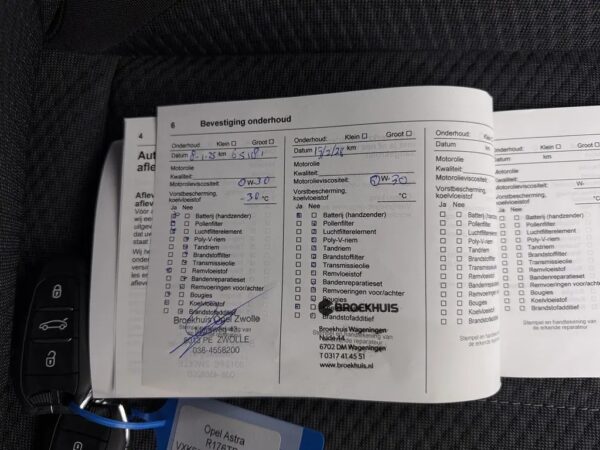 4
Aflev
6 Bevestiging onderhoud
Onderhoud: Klein ☐ Groot ☐
Datum 8-1-25 km 65181
Motorolie
Kwaliteit:
Motorolieviscositeit: 0W-30
Vorstbescherming,
koelvloeistof -30 °C
Ja Nee
Batterij (handzender)
Pollenfilter
Luchtfilterelement
Poly-V-riem
Tandriem
Brandstoffilter
Transmissieolie
Remvloeistof
Bandenreparatieset
Remvoeringen voor/achter
Bougies
Koelvloeistof
Brandstofadditief
Broekhuis Opel Zwolle
8013 PE ZWOLLE
038-4558200
Onderhoud: Klein ☐ Groot ☐
Datum km
Motorolie
Kwaliteit:
Motorolieviscositeit: 0W-30
Vorstbescherming,
koelvloeistof °C
Ja Nee
Batterij (handzender)
Pollenfilter
Luchtfilterelement
Poly-V-riem
Tandriem
Brandstoffilter
Transmissieolie
Remvloeistof
Bandenreparatieset
Remvoeringen voor/achter
Bougies
Koelvloeistof
Brandstofadditief
BROEKHUIS
Broekhuis Wageningen
Nude 44
6702 DM Wageningen
T 0317 41 45 51
www.broekhuis.nl
Onderhoud: Klein ☐
Datum km
Motorolie
Kwaliteit:
Motorolieviscositeit: W-
Vorstbescherming,
koelvloeistof °C
Ja Nee
Batterij (handzender)
Pollenfilter
Luchtfilterelement
Poly-V-riem
Tandriem
Brandstoffilter
Transmissieolie
Remvloeistof
Bandenreparatieset
Remvoeringen voor/achter
Bougies
Koelvloeistof
Brandstofadditief
Stempel en handtekening van
de erkende reparateur
Opel Astra